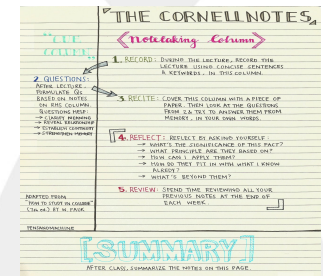 THE CORNELL NOTES
"CUE COLUMN"
Notetaking Column
1. RECORD: DURING THE LECTURE, RECORD THE
LECTURE USING CONCISE SENTENCES
& KEYWORDS, IN THIS COLUMN.
2. QUESTIONS:
AFTER LECTURE,
FORMULATE QS
BASED ON NOTES
ON RHS COLUMN.
QUESTIONS HELP:
→ CLARIFY MEANING
→ REVEAL RELATIONSHIP
→ ESTABLISH CONTINUITY
→ STRENGTHEN MEMORY
3. RECITE: COVER THIS COLUMN WITH A PIECE OF
PAPER. THEN LOOK AT THE QUESTIONS
FROM 2 & TRY TO ANSWER THEM FROM
MEMORY, IN YOUR OWN WORDS.
4. REFLECT: REFLECT BY ASKING YOURSELF:
→ WHAT'S THE SIGNIFICANCE OF THIS FACT?
→ WHAT PRINCIPLE ARE THEY BASED ON?
→ HOW CAN I APPLY THEM?
→ HOW DO THEY FIT IN WITH WHAT I KNOW
ALREADY?
→ WHAT'S BEYOND THEM?
5. REVIEW: SPEND TIME REVIEWING ALL YOUR
PREVIOUS NOTES AT THE END OF
EACH WEEK.
ADAPTED FROM
"HOW TO STUDY IN COLLEGE"
BY W. PAUK
PENSANDMACHINE
[SUMMARY]
AFTER CLASS, SUMMARIZE THE NOTES ON THIS PAGE.